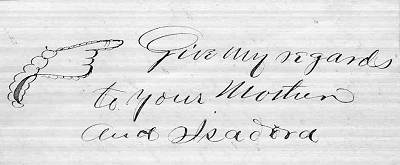 Give my regards
to your Mother
and Isadora